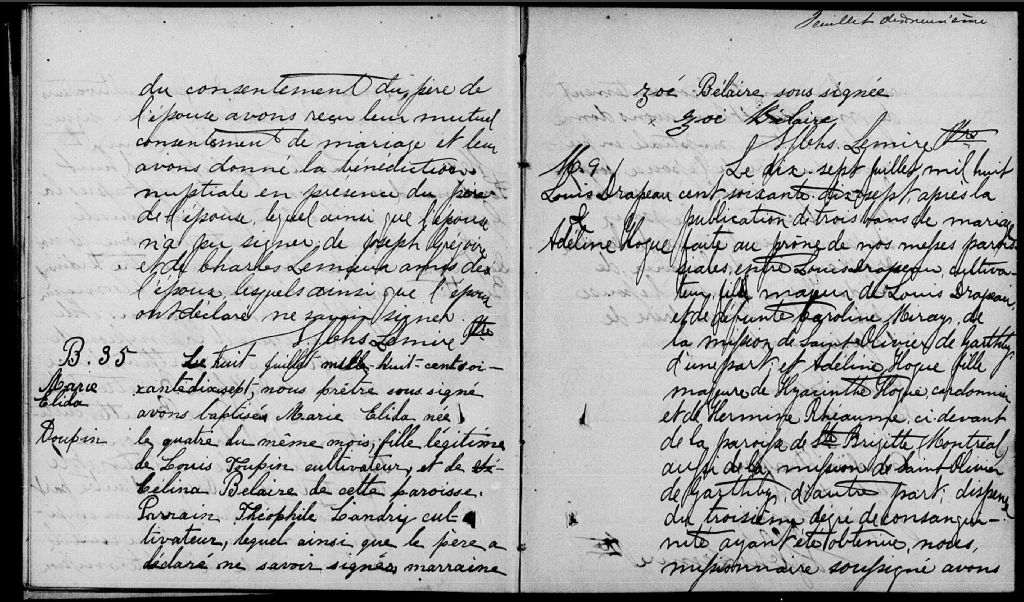 du consentement du père de
l'épouse avons reçu leur mutuel
consentement de mariage et leur
avons donné la bénédiction
nuptiale en presence du père
de l'épouse, lequel ainsi que l'épouse
n'a pu signer, de Joseph Grégoire
et de Charles Lemieux amis de
l'époux, lesquels ainsi que l'époux
ont déclaré ne savoir signer.
Lemire Ptre
B. 35
Marie
Elida
Toupin
Le huit juillet mille-huit-cent soi-
xante dix-sept, nous prêtre sous signé
avons baptisée Marie Elida née
le quatre du même mois, fille légitime
de Louis Toupin cultivateur, et de
Célina Bélaire de cette paroisse.
Parrain Théophile Landry cul-
tivateur, lequel ainsi que le père a
déclaré ne savoir signer, marraine
Feuillet dixneuvième
zoé Bélaire sous signée
Zoé Bélaire
Lemire Ptre
M. 9
Louis Drapeau
&
Adéline Hogue
Le dix-sept juillet, mil huit
cent soixante dix sept, après la
publication de trois bans de mariage
faite au prône de nos messes parois-
siales, entre Louis Drapeau, cultiva-
teur, fils majeur de Louis Drapeau,
et de défunte Caroline, de
la mission de Saint Olivier de Garthby
d'une part; et Adéline Hogue fille
majeure de Hyacinthe Hogue, cordonnier
et de Hermine Rhéaume, ci-devant
de la paroisse de Ste Brigitte, Montréal,
aussi de la mission de Saint Olivier
de Garthby, d'autre part; dispense
du troisième dégré de consangui-
nité ayant été obtenue, nous,
missionnaire soussigné avons